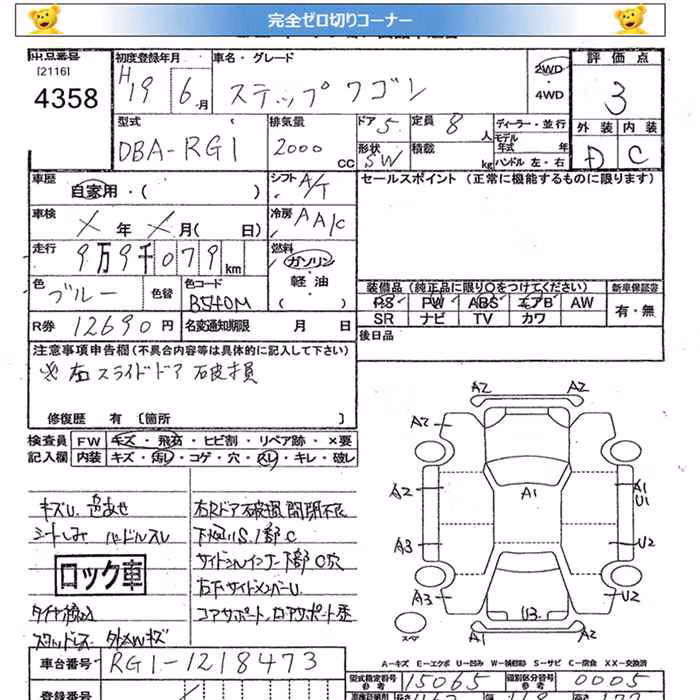 完全ゼロ切りコーナー
出品番号 初度登録年月 車名・グレード 2WD 評価点
[2116]
4358 H19 6月 ステップワゴン ・4WD 3
型式 排気量 ドア 5 定員 8人 ディーラー・並行 外装 内装
DBA-RG1 2000CC 形状 SW 積載 kg モデル年式 年 ハンドル 左・右 D C
車歴 自家用・( ) シフト A/T セールスポイント (正常に機能するものに限ります)
車検 X年X月( 日) 冷房 AA/C
走行 9万9千079km 燃料 ガソリン・軽油( )
色 ブルー 色替 色コード B540M
装備品(純正品に限り○をつけてください) 新車保証書
PS PW ABS エアB AW 有・無
SR ナビ TV カワ
R券 12690円 名変通知期限 月 日
後日品
注意事項申告欄(不具合内容等は具体的に記入して下さい)
右スライドドア 破損
修復歴 有 〔箇所 〕
検査員 FW キズ・飛石・ヒビ割・リペア跡・×要
記入欄 内装 キズ・汚れ・コゲ・穴・スレ・キレ・破レ
キズU. 色あせ
シートしみ ハンドルスレ
ロック車
右Rドア破損 開閉不良
A2 A2
A2
A1
A2 A1
U1
A3 U2
A3 U2
U3
A1 A2
スペア
A-キズ E-エクボ U-凹み W-補修跡 S-サビ C-腐食 XX-交換済
車台番号 RG1-1218473
型式指定番号 参考 15065 類別区分番号 参考 0005
登録番号